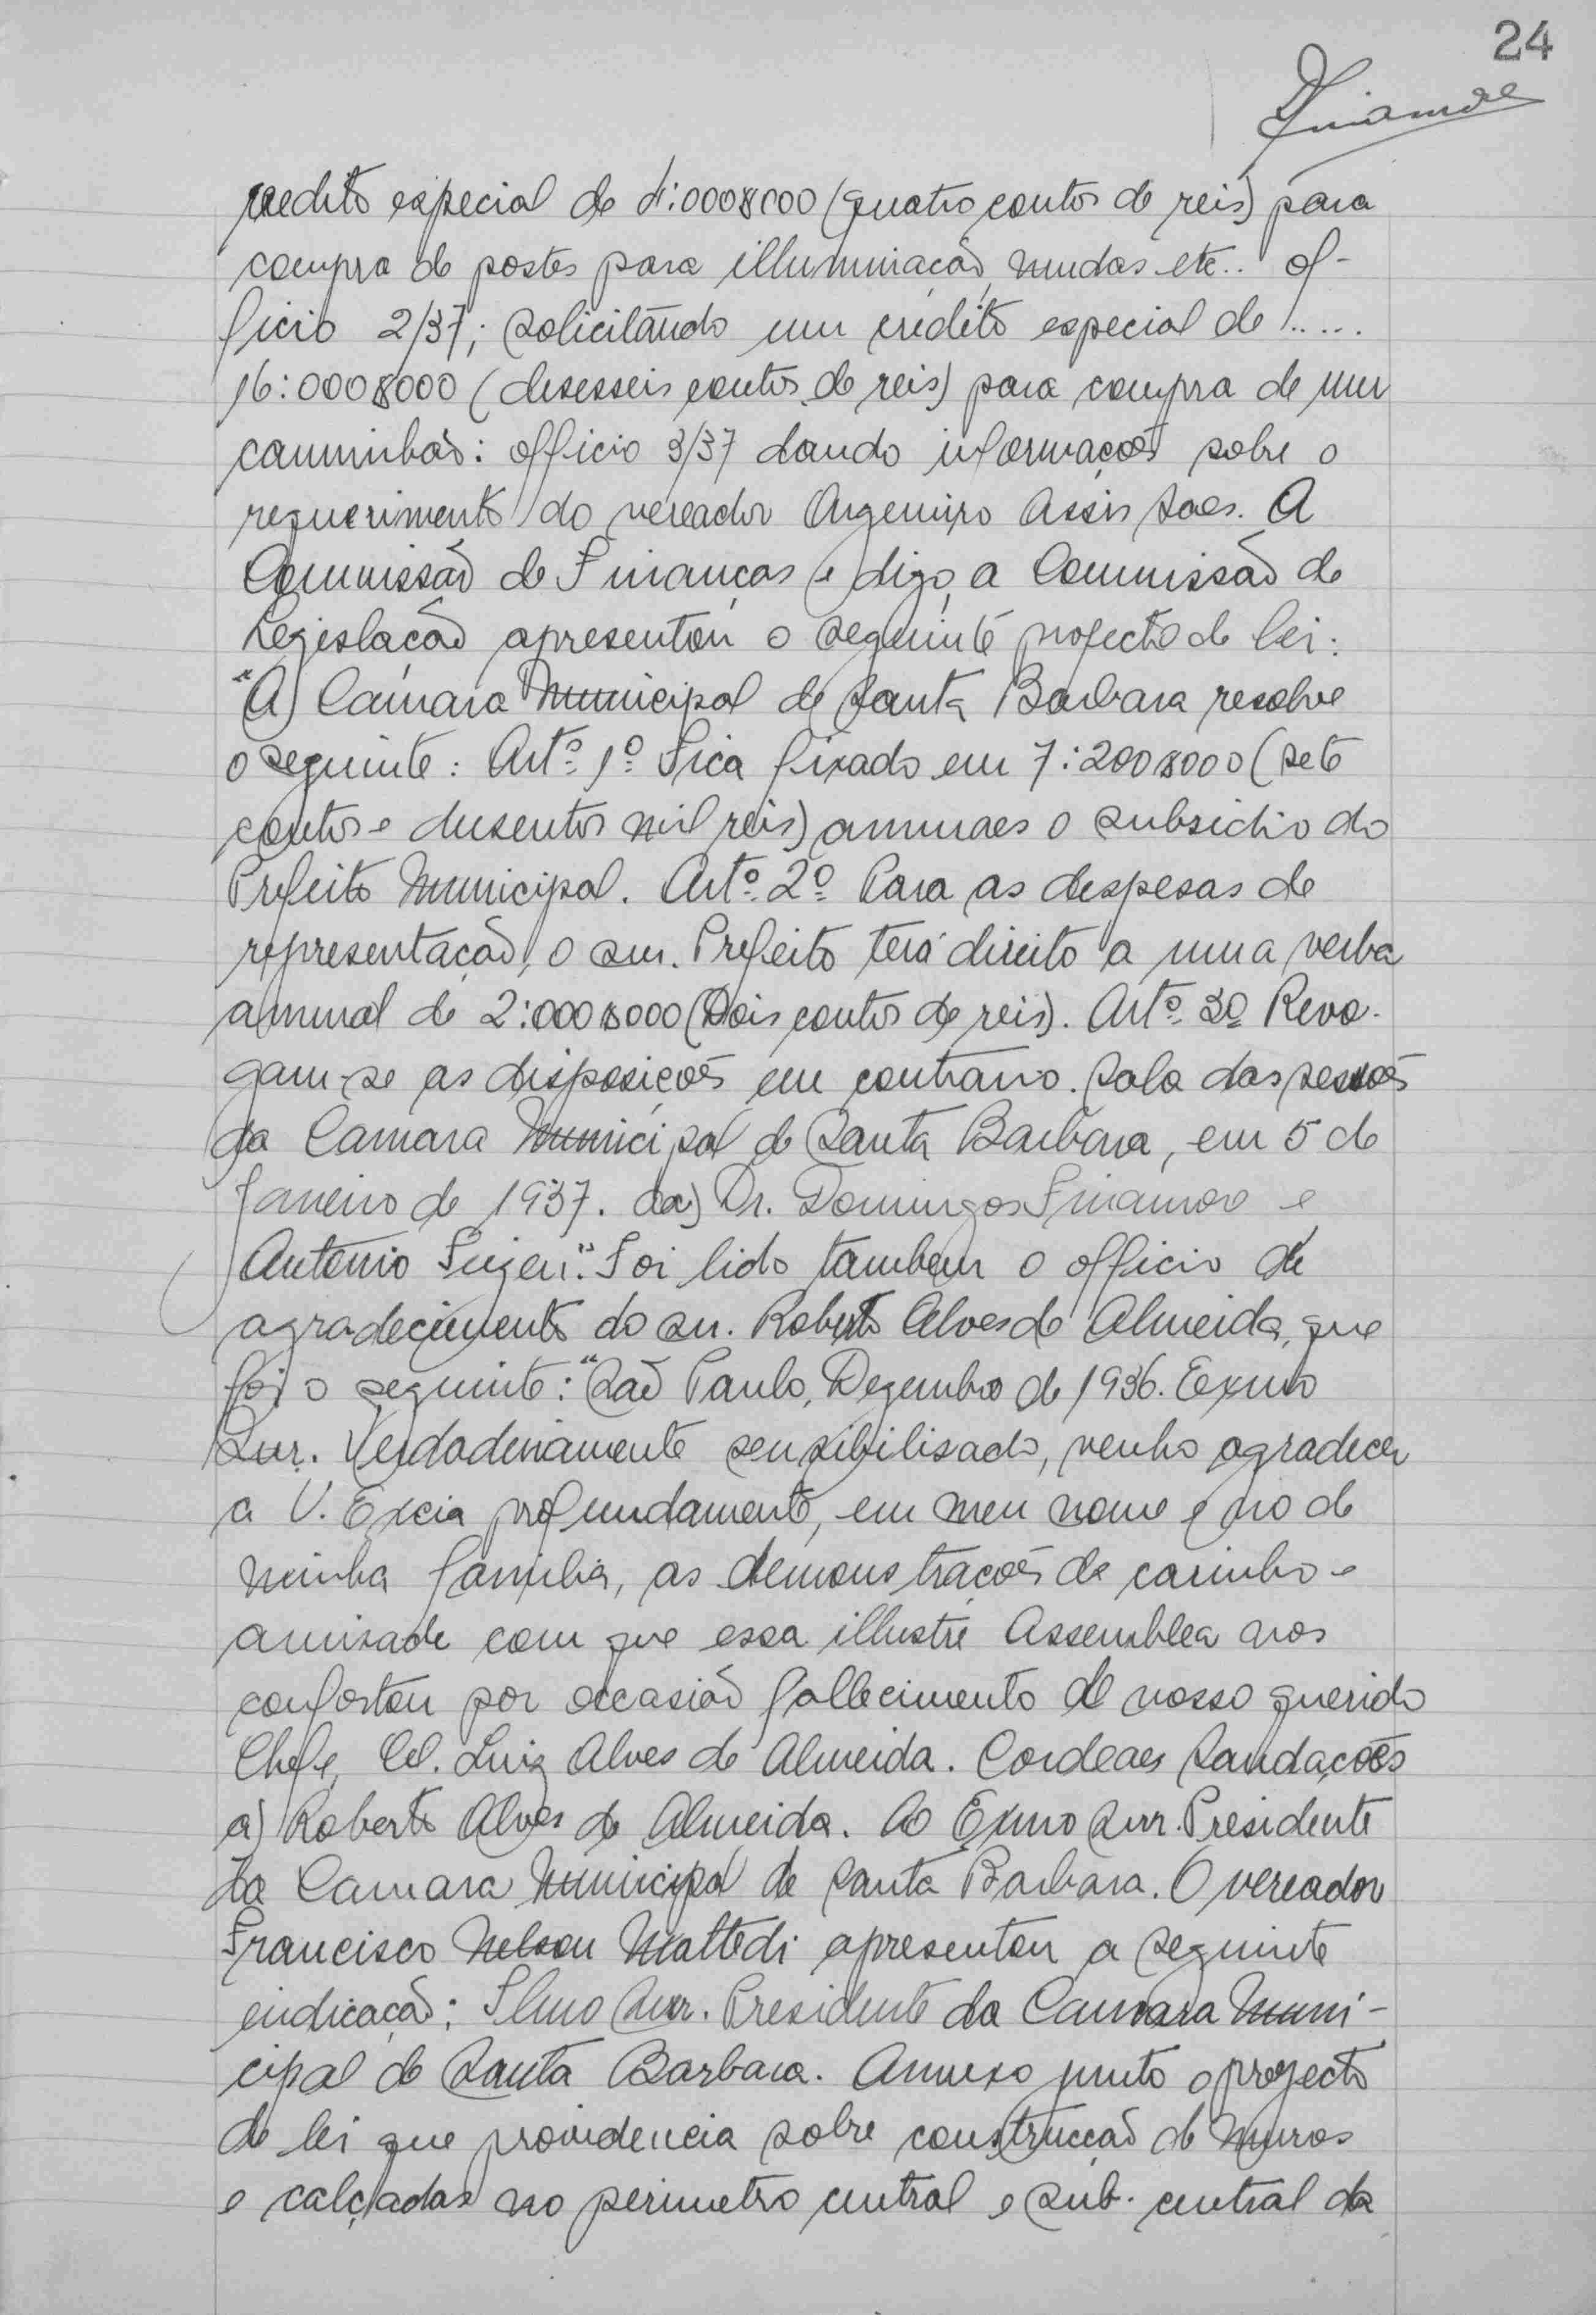 24
Finamore
credito especial de 4:000$000 (quatro contos de reis) para
compra de postes para illuminação, mudas etc.. of-
ficio 2/37; solicitando um credito especial de .....
16:000$000 (desesseis contos de reis) para compra de um
camminhão: officio 3/37 dando informações sobre o
requerimento do vereador Argemiro Assis Saes. A
Commissão de Finanças e digo, a Commissão de
Legislação apresentou o seguinte projecto de lei:
"A) Camara Municipal de Santa Barbara resolve
o seguinte: Artº 1º Fica fixado em 7:200$000 (sete
contos e dusentos mil reis) annuaes o subsidio do
Prefeito Municipal. Artº 2º Para as despesas de
representação, o snr. Prefeito terá direito a uma verba
annual de 2:000$000 (Dois contos de reis). Artº 3º Revo-
gam-se as disposições em contrario. Sala das sessões
da Camara Municipal de Santa Barbara, em 5 de
Janeiro de 1937. aa) Dr. Domingos Finamore e
Antonio". Foi lido tambem o officio de
agradecimento do sn. Roberto Alves de Almeida, que
foi o seguinte: "São Paulo, Dezembro de 1936. Exmo
Snr. Verdadeiramente sensibilisado, venho agradecer
a V. Excia profundamente, em meu nome e no de
minha familia, as demonstrações de carinho e
amisade com que essa illustre Assemblea nos
confortou por occasião fallecimento de nosso querido
Chefe, Cel. Luiz Alves de Almeida. Cordeaes Saudações
a) Roberto Alves de Almeida. Ao Exmo Snr. Presidente
da Camara Municipal de Santa Barbara. O vereador
Francisco Nelson Mattedi apresentou a seguinte
indicação: Illmo Snr. Presidente da Camara Muni-
cipal de Santa Barbara. Annexo junto o projecto
de lei que providencia sobre construcção de muros
e calçadas no perimetro central e sub-central da